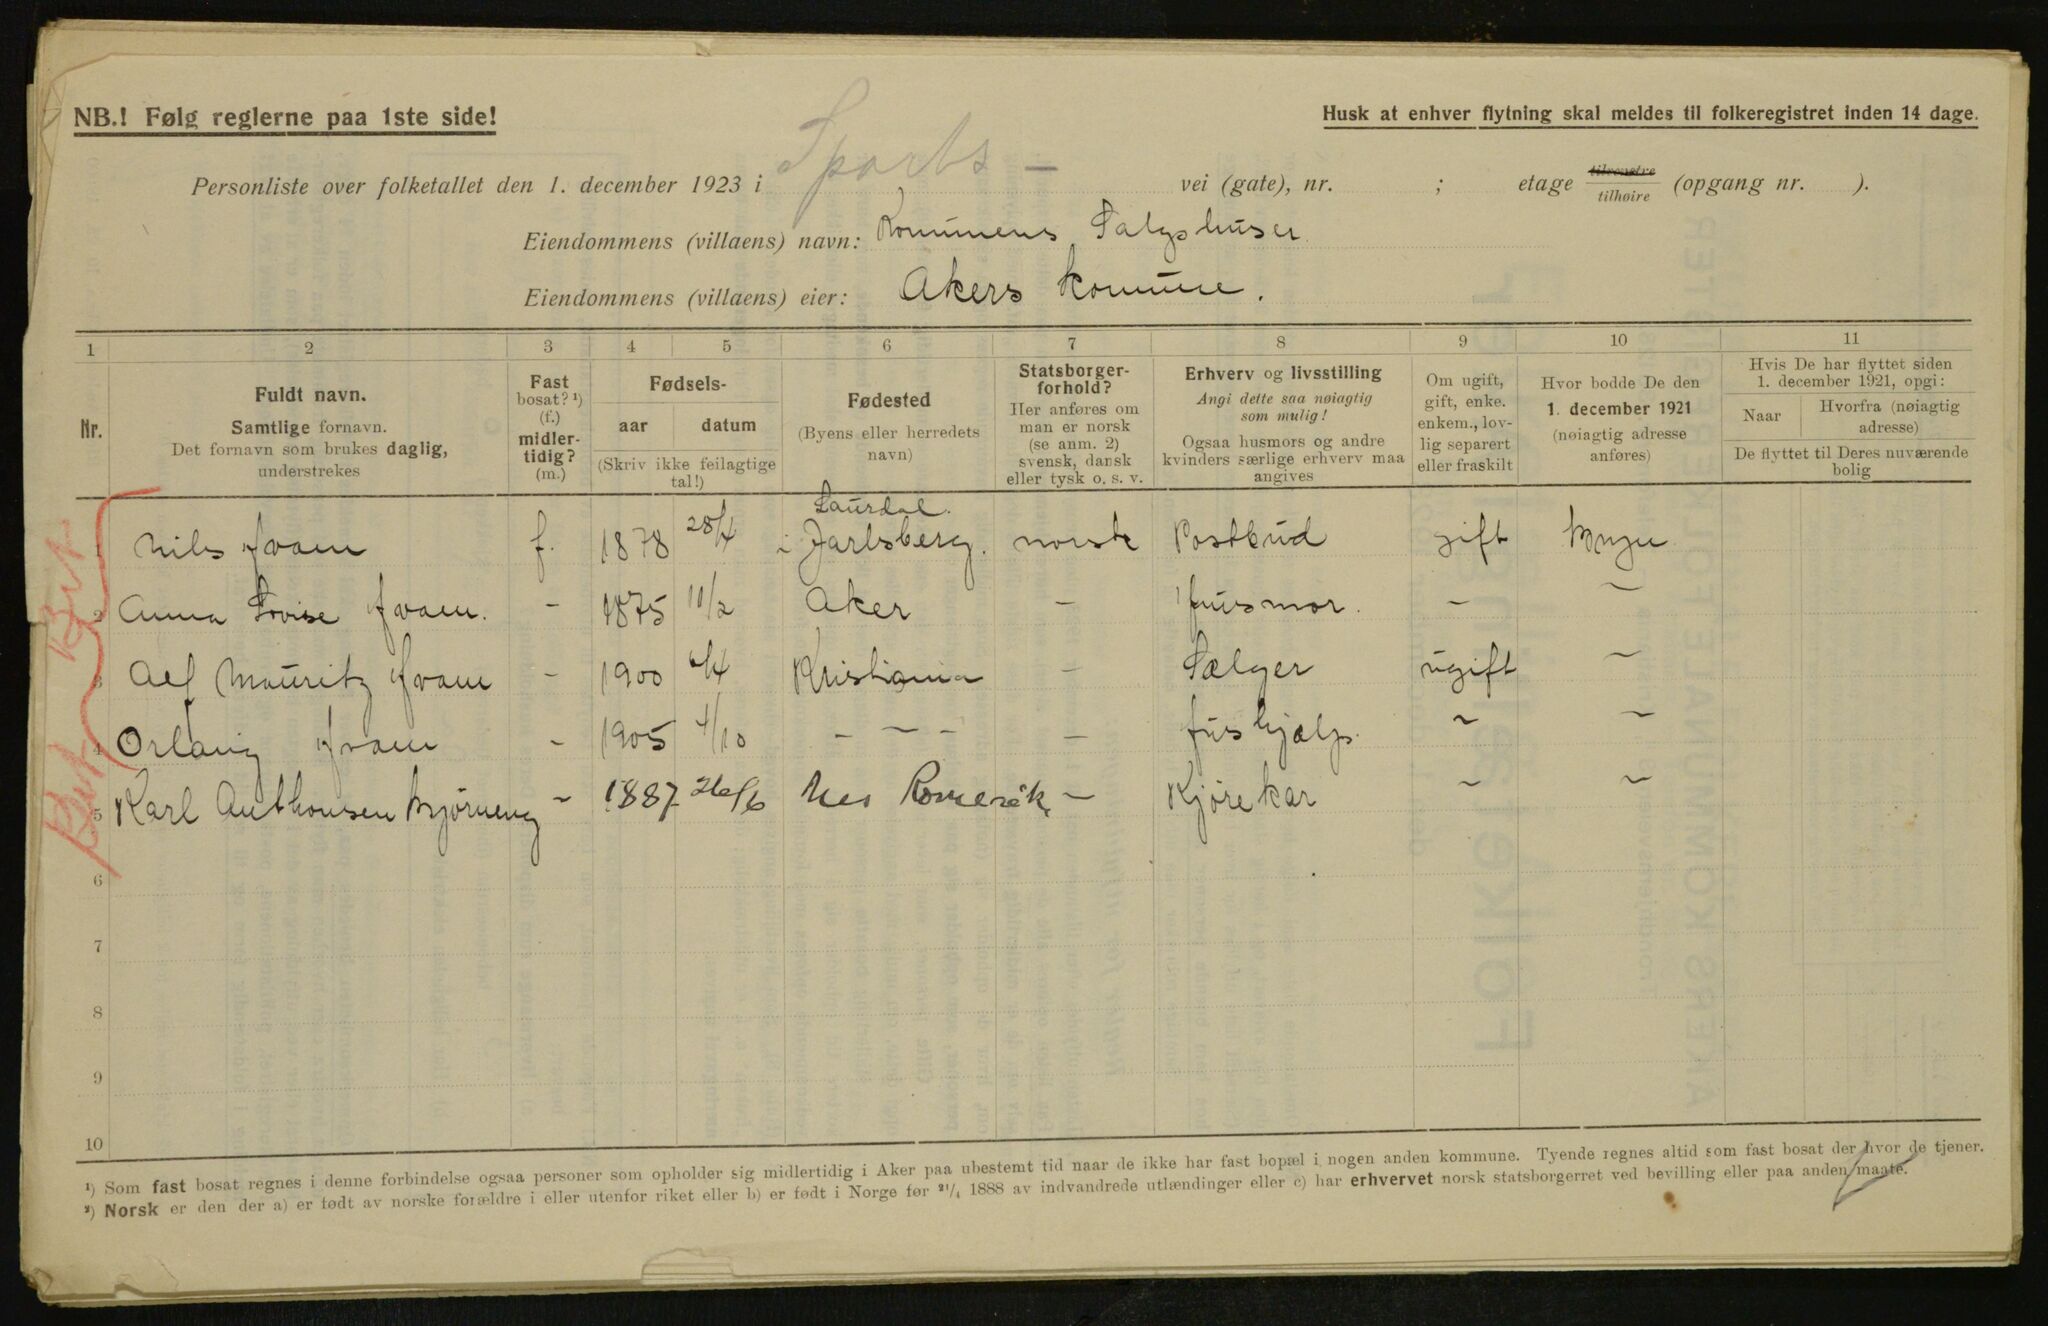 NB.! Følg reglerne paa 1ste side!
Husk at enhver flytning skal meldes til folkeregistret inden 14 dage.
Personliste over folketallet den 1. december 1923 i Sports - vei (gate), nr. ; etage tilvenstre/tilhøire (opgang nr. ).
Eiendommens (villaens) navn: Kommunens Salgshuser
Eiendommens (villaens) eier: Akers komune.
1 2 3 4 5 6 7 8 9 10 11
Nr.
Fuldt navn.
Samtlige fornavn.
Det fornavn som brukes daglig,
understrekes
Fast
bosat? ¹)
(f.)
midler-
tidig?
(m.)
Fødsels-
aar datum
(Skriv ikke feilagtige
tal!)
Fødested
(Byens eller herredets
navn)
Statsborger-
forhold?
Her anføres om
man er norsk
(se anm. 2)
svensk, dansk
eller tysk o. s. v.
Erhverv og livsstilling
Angi dette saa nøiagtig
som mulig!
Ogsaa husmors og andre
kvinders særlige erhverv maa
angives
Om ugift,
gift, enke.
enkem., lov-
lig separert
eller fraskilt
Hvor bodde De den
1. december 1921
(nøiagtig adresse
anføres)
Hvis De har flyttet siden
1. december 1921, opgi:
Naar Hvorfra (nøiagtig
adresse)
De flyttet til Deres nuværende
bolig
1 Nils f. 1878 28/4 i Jarlsberg. norsk Postbud gift
2 Anna Lovise - 1875 11/2 Aker - Husmor. - ~
3 Alf Mauritz - 1900 Kristiania - Sælger ugift ~
4 Orlaug - 1905 4/10 - - - - Hushjælp. ~ ~
5 Karl Anthonsen Bjørneng - 1887 26/6 Nes Romerike - Kjørekar ~ ~
6
7
8
9
10
¹) Som fast bosat regnes i denne forbindelse ogsaa personer som opholder sig midlertidig i Aker paa ubestemt tid naar de ikke har fast bopæl i nogen anden kommune. Tyende regnes altid som fast bosat der hvor de tjener.
²) Norsk er den der a) er født av norske forældre i eller utenfor riket eller b) er født i Norge før ²¹/₄ 1888 av indvandrede utlændinger eller c) har erhvervet norsk statsborgerret ved bevilling eller paa anden maate.